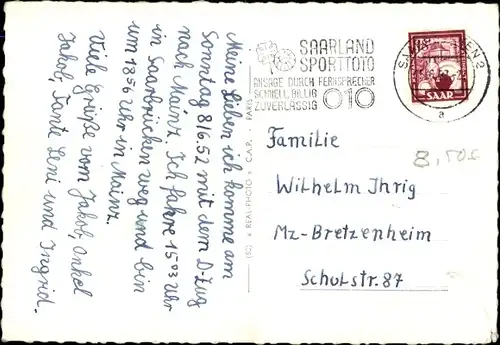 Meine Lieben ich komme am
Sonntag 8/6.52 mit dem D-Zug
nach Mainz. Ich fahre 15⁰³ Uhr
in Saarbrücken weg und bin
um 18⁵⁶ Uhr in Mainz.
Viele Grüße vom Jakob, Onkel
Jakob, Tante Leni und Ingrid.
REALPHOTO C.A.P. PARIS
SAARLAND
SPORTTOTO
ANSAGE DURCH FERNSPRECHER
SCHNELL, BILLIG
ZUVERLÄSSIG 010
2
a
SAAR
8,50€
Familie
Wilhelm Ihrig
Mz-Bretzenheim
Schulstr. 87